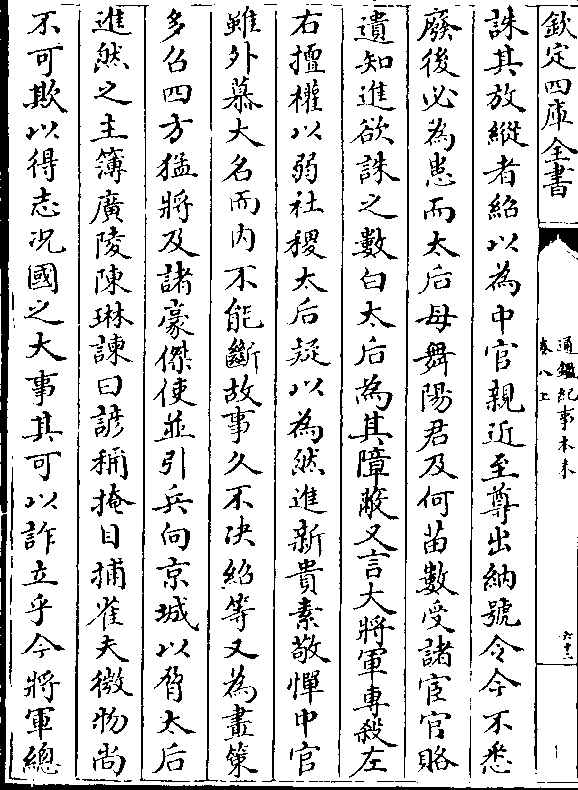 欽定四庫全書
通鑑紀事本末
卷八上
六十二
誅其放縱者紹以為中官親近至尊出納號令今不悉
廢後必為患而太后母舞陽君及何苗數受諸宦官賂
遺知進欲誅之數白太后為其障蔽又言大將軍專殺左
右擅權以弱社稷太后疑以為然進新貴素敬憚中官
雖外慕大名而内不能斷故事久不决紹等又為畫策
多召四方猛將及諸豪傑使並引兵向京城以脅太后
進然之主簿廣陵陳琳諫曰諺稱掩目捕雀夫微物尚
不可欺以得志况國之大事其可以詐立乎今將軍總